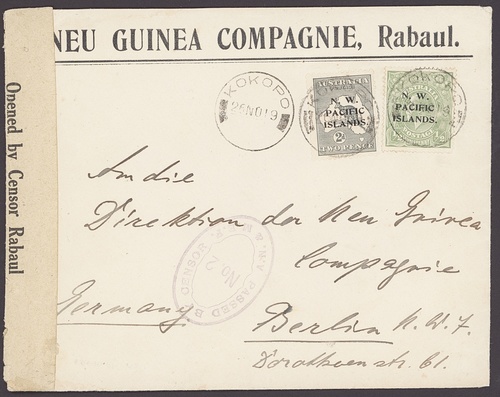 NEU GUINEA COMPAGNIE, Rabaul.
Opened by Censor Rabaul
KOKOPO
25NO19
AUSTRALIA
N. W.
PACIFIC
ISLANDS.
2D
TWO PENCE
KOKOPO
N. W.
PACIFIC
ISLANDS.
POSTAGE
An die
Direktion der Neu Guinea
Compagnie
PASSED BY CENSOR
No. 2
Germany
Berlin N. W. 7.
Dorotheenstr. 61.